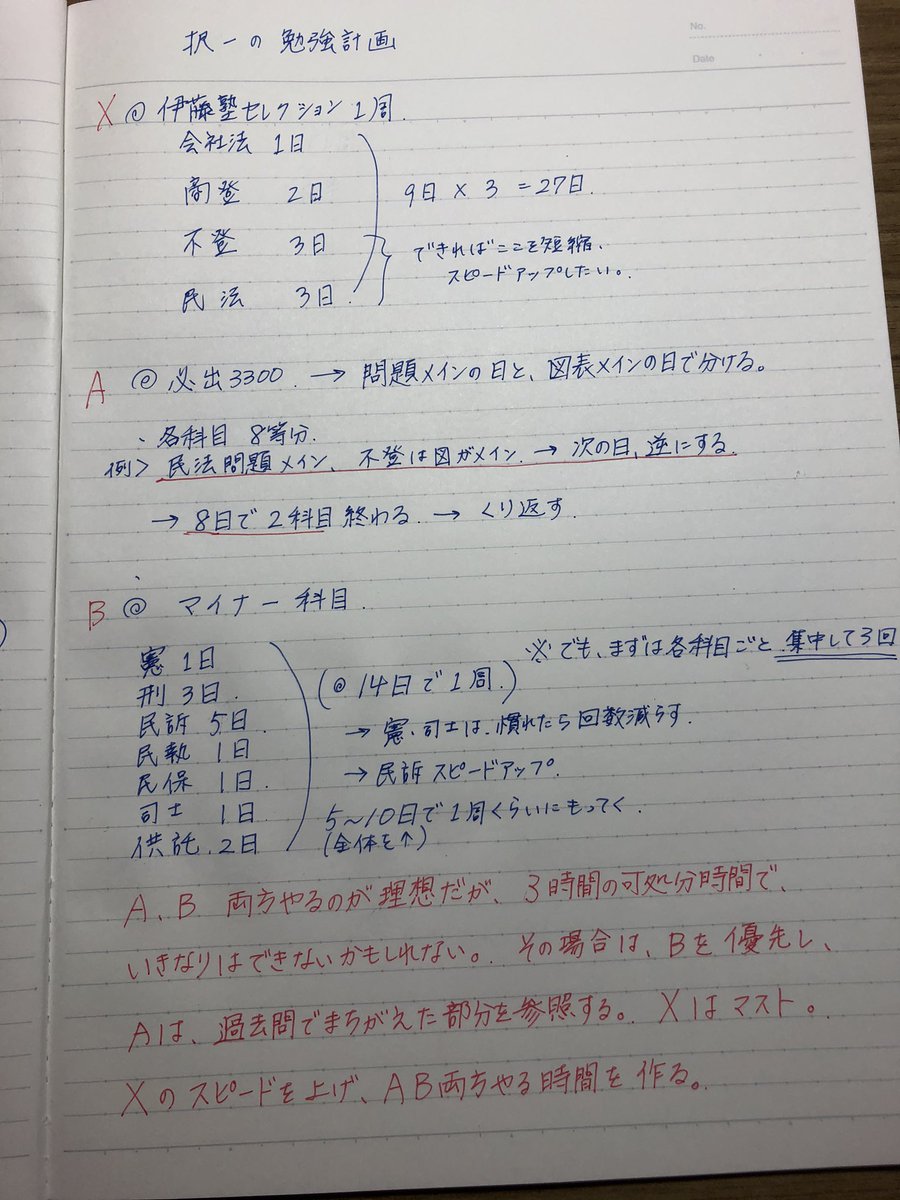 No.
Date
択一の勉強計画
X @ 伊藤塾セレクション 1周.
会社法 1日
商登 2日
9日 × 3 = 27日.
不登 3日
できればここを短縮、
スピードアップしたい。
民法 3日
A @ 必出3300. → 問題メインの日と、図表メインの日で分ける。
・各科目 8等分.
例> 民法問題メイン、不登は図がメイン. → 次の日、逆にする.
→ 8日で2科目終わる → くり返す
B @ マイナー科目.
※でも、まずは各科目ごと集中して3回
憲 1日
(@ 14日で1周.)
刑 3日.
民訴 5日
→ 憲・司士は、慣れたら回数減らす.
民執 1日
→ 民訴スピードアップ.
民保 1日.
司士 1日
5〜10日で1周くらいにもってく.
供託. 2日
(全体を↑)
A、B 両方やるのが理想だが、3時間の可処分時間で、
いきなりはできないかもしれない。その場合は、Bを優先し、
Aは、過去問でまちがえた部分を参照する。Xはマスト。
Xのスピードを上げ、AB両方やる時間を作る。